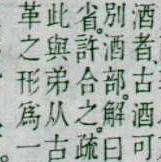 酒者古酒可
別酒部。解曰
省。許合之。疏
此與弟从古
革之形爲一